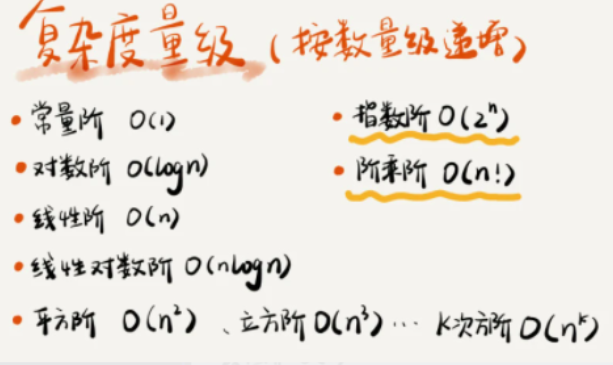 复杂度量级（按数量级递增）
• 常量阶 O(1)
• 对数阶 O(logn)
• 线性阶 O(n)
• 线性对数阶 O(nlogn)
• 平方阶 O(n²) 、立方阶 O(n³) ··· k次方阶 O(nᵏ)
• 指数阶 O(2ⁿ)
• 阶乘阶 O(n!)